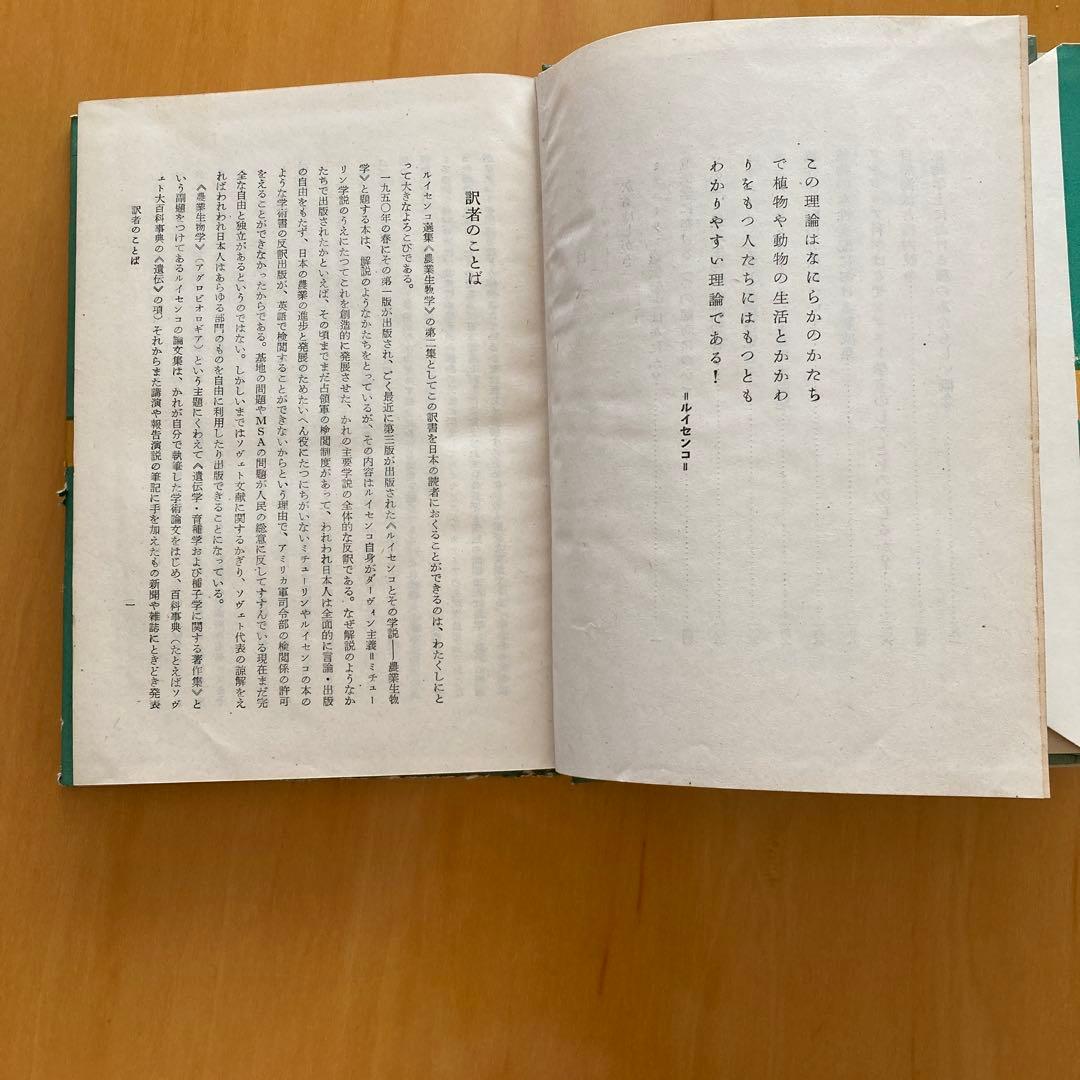 この理論はなにらかのかたち
で植物や動物の生活とかかわ
りをもつ人たちにはもつとも
わかりやすい理論である！
＝ルイセンコ＝
訳者のことば
ルイセンコ選集《農業生物学》の第二集としてこの訳書を日本の読者におくることができるのは、わたくしにと
って大きなよろこびである。
一九五〇年の春にその第一版が出版され、ごく最近に第三版が出版された《ルイセンコとその学説――農業生物
学》と題する本は、解説のようなかたちをとっているが、その内容はルイセンコ自身がダーヴィン主義＝ミチュー
リン学説のうえにたつてこれを創造的に発展させた、かれの主要学説の全体的な反訳である。なぜ解説のようなか
たちで出版されたかといえば、その頃までまだ占領軍の検閲制度があって、われわれ日本人は全面的に言論・出版
の自由をもたず、日本の農業の進歩と発展のためたいへん役にたつにちがいないミチューリンやルイセンコの本の
ような学術書の反訳出版が、英語で検閲することができないからという理由で、アミリカ軍司令部の検閲係の許可
をえることができなかったからである。基地の問題やMSAの問題が人民の総意に反してすすんでいる現在まだ完
全な自由と独立があるというのではない。しかしいまではソヴェト文献に関するかぎり、ソヴェト代表の諒解をえ
ればわれわれ日本人はあらゆる部門のものを自由に利用したり出版できることになっている。
《農業生物学》（アグロビオロギア）という主題にくわえて《遺伝学・育種学および種子学に関する著作集》と
いう副題をつけてあるルイセンコの論文集は、かれが自分で執筆した学術論文をはじめ、百科事典（たとえばソヴ
ェト大百科事典の《遺伝》の項）それからまた講演や報告演説の筆記に手を加えたもの新聞や雑誌にときどき発表
訳者のことば
一